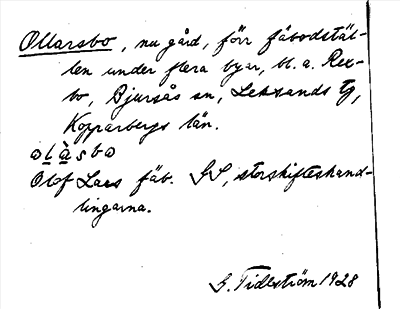 Ollarsbo, nu gård, förr fäbodstäl-
len under flera byar, bl. a. Rex-
bo, Bjursås sn, Leksands tg,
Kopparbergs län.
olàsbo
Olof Lars fäb. SS, storskifteshand-
lingarna.
G. Tideström 1928